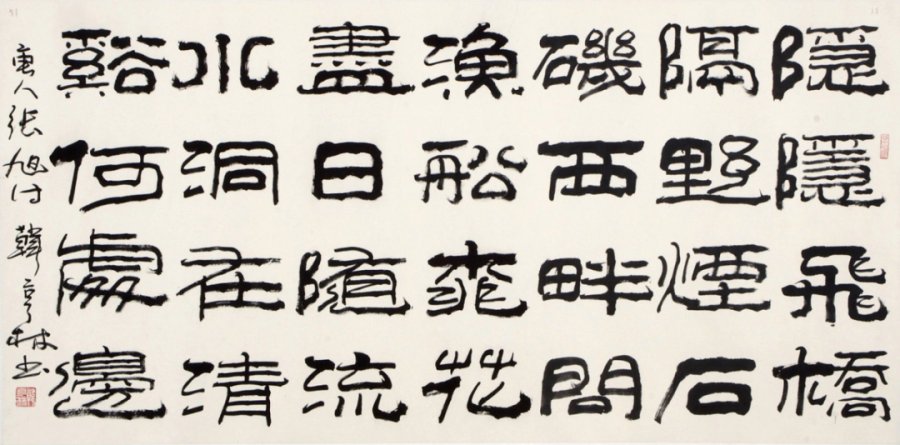 隱隱飛橋
隔野煙石
磯西畔問
漁舩桃花
盡日隨流
水洞在清
谿何處邊
唐人張旭詩 韓亨林书